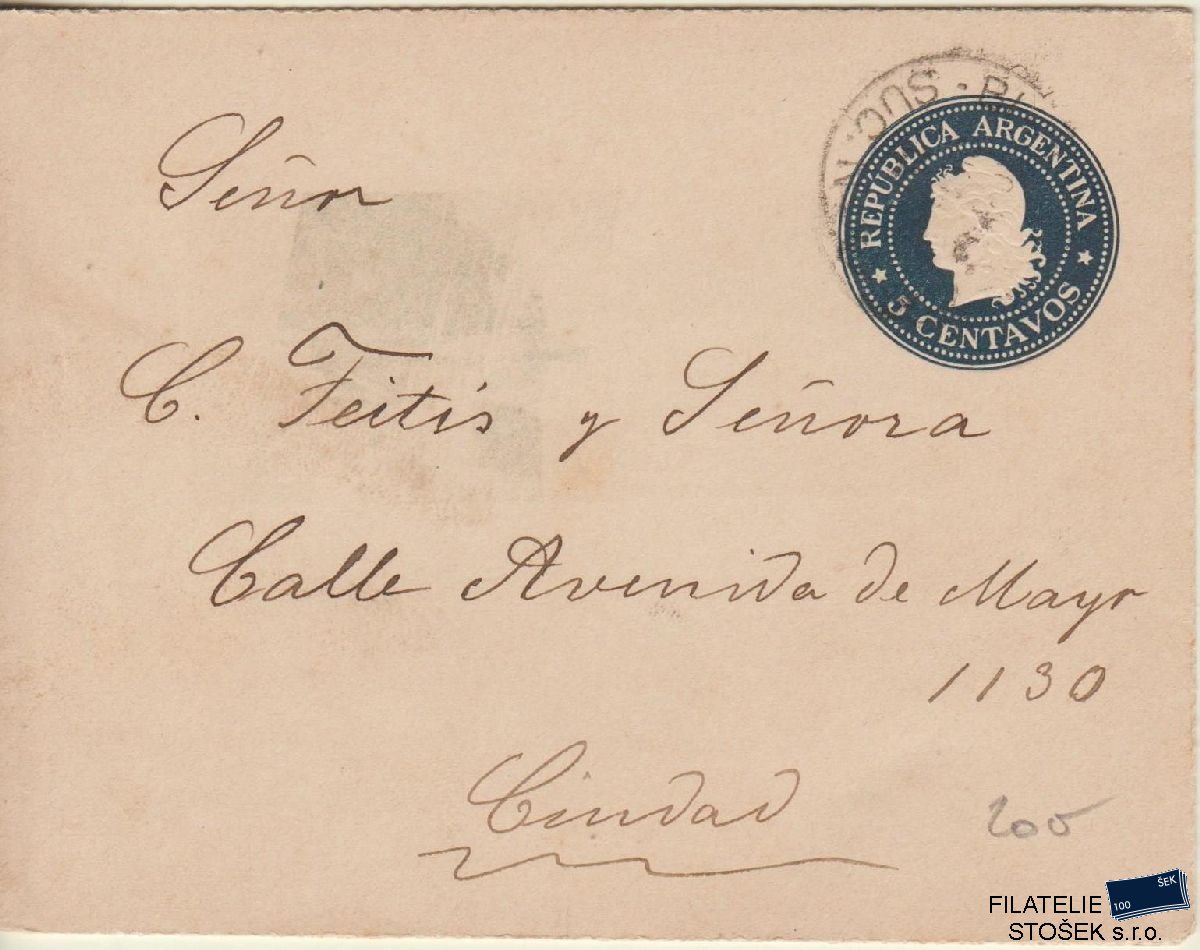 Señor
C. Feitis y Señora
Calle Avenida de Mayo
1130
Ciudad
REPUBLICA ARGENTINA
5 CENTAVOS
SUC. N
200
100 ŠEK
FILATELIE
STOŠEK s.r.o.